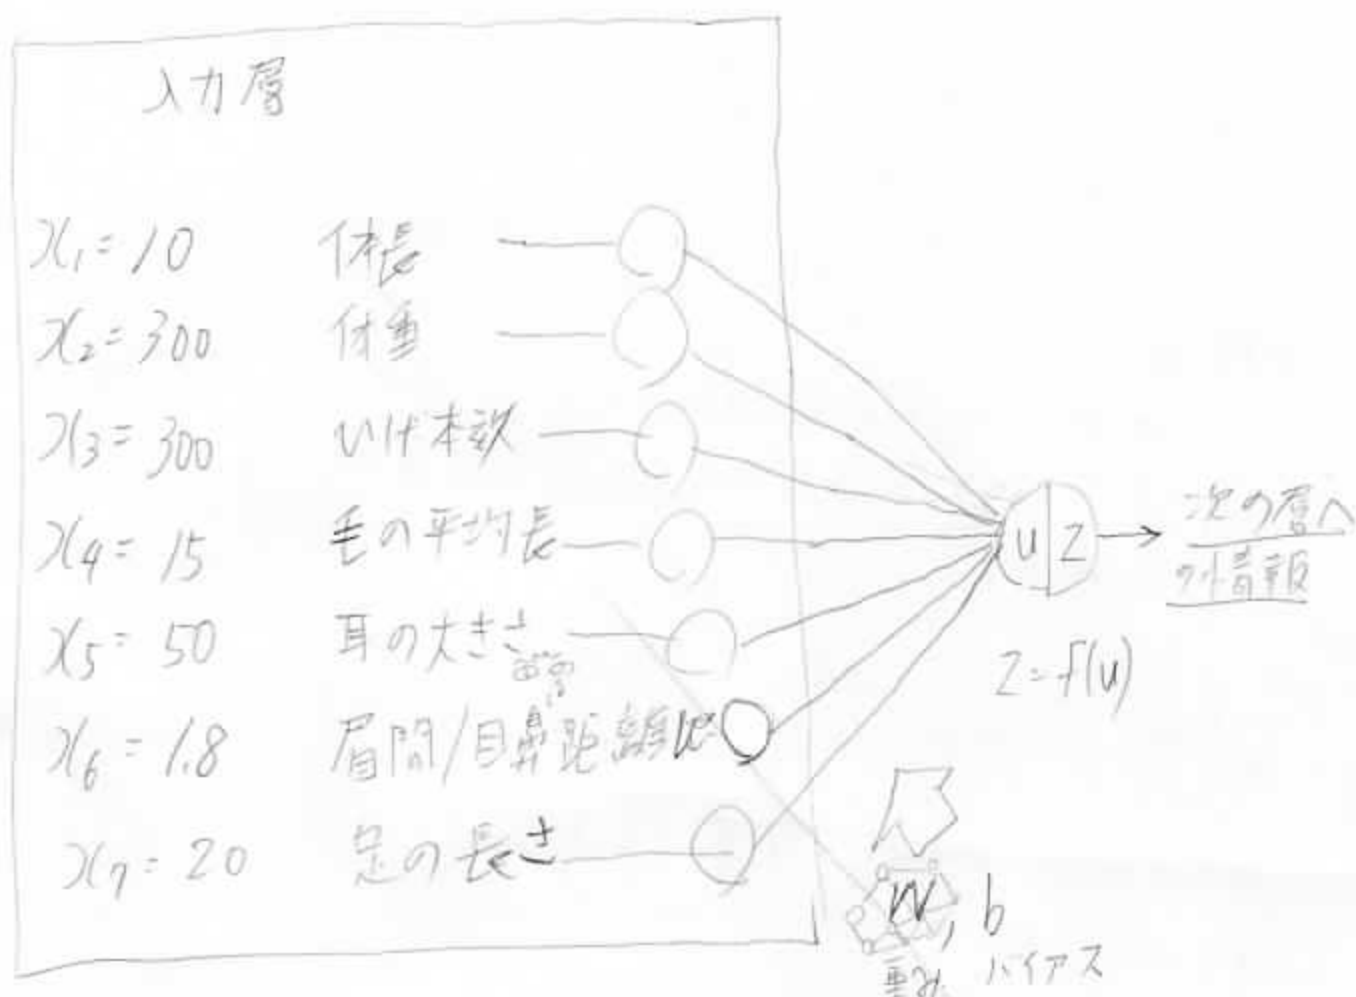 入力層
x₁ = 10 体長
x₂ = 300 体重
x₃ = 300 ひげ本数
x₄ = 15 毛の平均長
x₅ = 50 耳の大きさ
x₆ = 1.8 眉間/目鼻距離比
x₇ = 20 足の長さ
u z
次の層へ
z = f(u)
W, b
重み バイアス